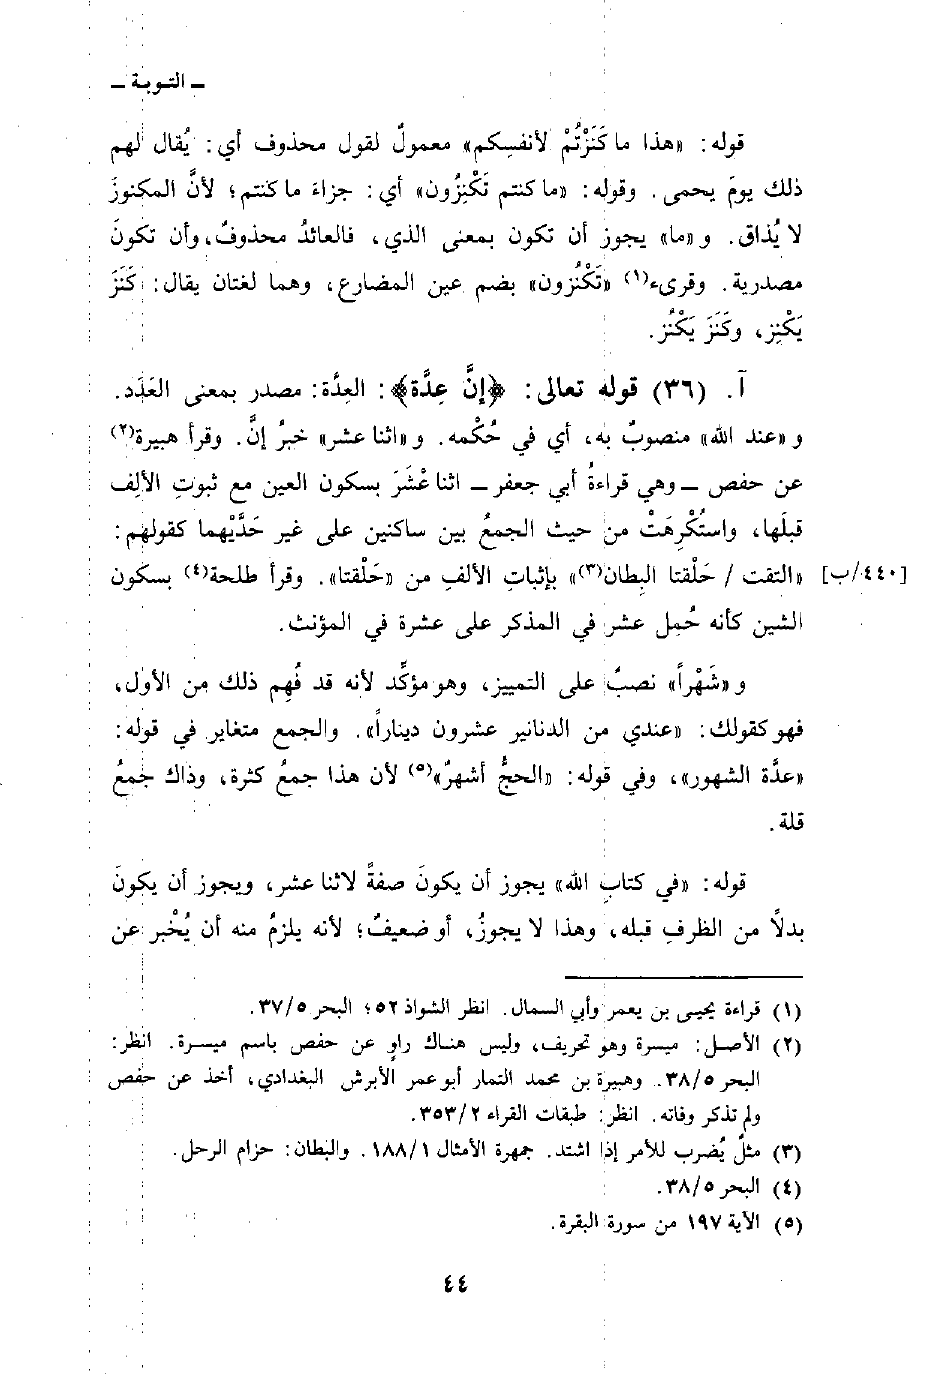 ـ التوبة ـ
قوله: «هذا ما كَنَزْتُمْ لأنفسِكم» معمولٌ لقول محذوف أي: يُقال لهم
ذلك يومَ يحمى. وقوله: «ما كنتم تَكْنِزُون» أي: جزاءَ ما كنتم؛ لأنَّ المكنوزَ
لا يُذاق. و «ما» يجوز أن تكون بمعنى الذي، فالعائدُ محذوفٌ، وأن تكونَ
مصدرية. وقرىء(١) «تَكْنُزون» بضم عين المضارع، وهما لغتان يقال: كَنَزَ
يَكْنِز، وكَنَزَ يَكْنُز.
آ. (٣٦) قوله تعالى: ﴿إنَّ عِدَّة﴾: العِدَّة: مصدر بمعنى العَدَد.
و «عند الله» منصوبٌ به، أي في حُكْمه. و «اثنا عشر» خبرُ إنَّ. وقرأ هبيرة(٢)
عن حفص ــ وهي قراءةُ أبي جعفر ــ اثنا عْشَرَ بسكون العين مع ثبوتِ الألِف
قبلَها، واستُكْرِهَتْ من حيث الجمعُ بين ساكنين على غير حَدَّيْهما كقولهم:
«التقت / حَلْقتا البِطان(٣)» بإثباتِ الألفِ من «حَلْقتا». وقرأ طلحة(٤) بسكون [٤٤٠/ب]
الشين كأنه حُمِل عشر في المذكر على عشرة في المؤنث.
و «شَهْراً» نصبٌ على التمييز، وهو مؤكِّد لأنه قد فُهِم ذلك مِن الأول،
فهو كقولك: «عندي من الدنانير عشرون ديناراً». والجمع متغاير في قوله:
«عدَّة الشهور»، وفي قوله: «الحجُّ أشهرٌ»(٥) لأن هذا جمعُ كثرة، وذاك جمعُ
قلة.
قوله: «في كتابِ الله» يجوز أن يكونَ صفةً لاثنا عشر، ويجوز أن يكونَ
بدلًا من الظرفِ قبله، وهذا لا يجوزُ، أو ضعيفٌ؛ لأنه يلزمُ منه أن يُخْبر عن
(١) قراءة يحيى بن يعمر وأبي السمال. انظر الشواذ ٥٢؛ البحر ٣٧/٥.
(٢) الأصل: ميسرة وهو تحريف، وليس هناك راوٍ عن حفص باسم ميسرة. انظر:
البحر ٣٨/٥. وهبيرة بن محمد التمار أبو عمر الأبرش البغدادي، أخذ عن حفص
ولم تذكر وفاته. انظر: طبقات القراء ٣٥٣/٢.
(٣) مثلٌ يُضرب للأمر إذا اشتد. جمهرة الأمثال ١٨٨/١. والبطان: حزام الرحل.
(٤) البحر ٣٨/٥.
(٥) الآية ١٩٧ من سورة البقرة.
٤٤